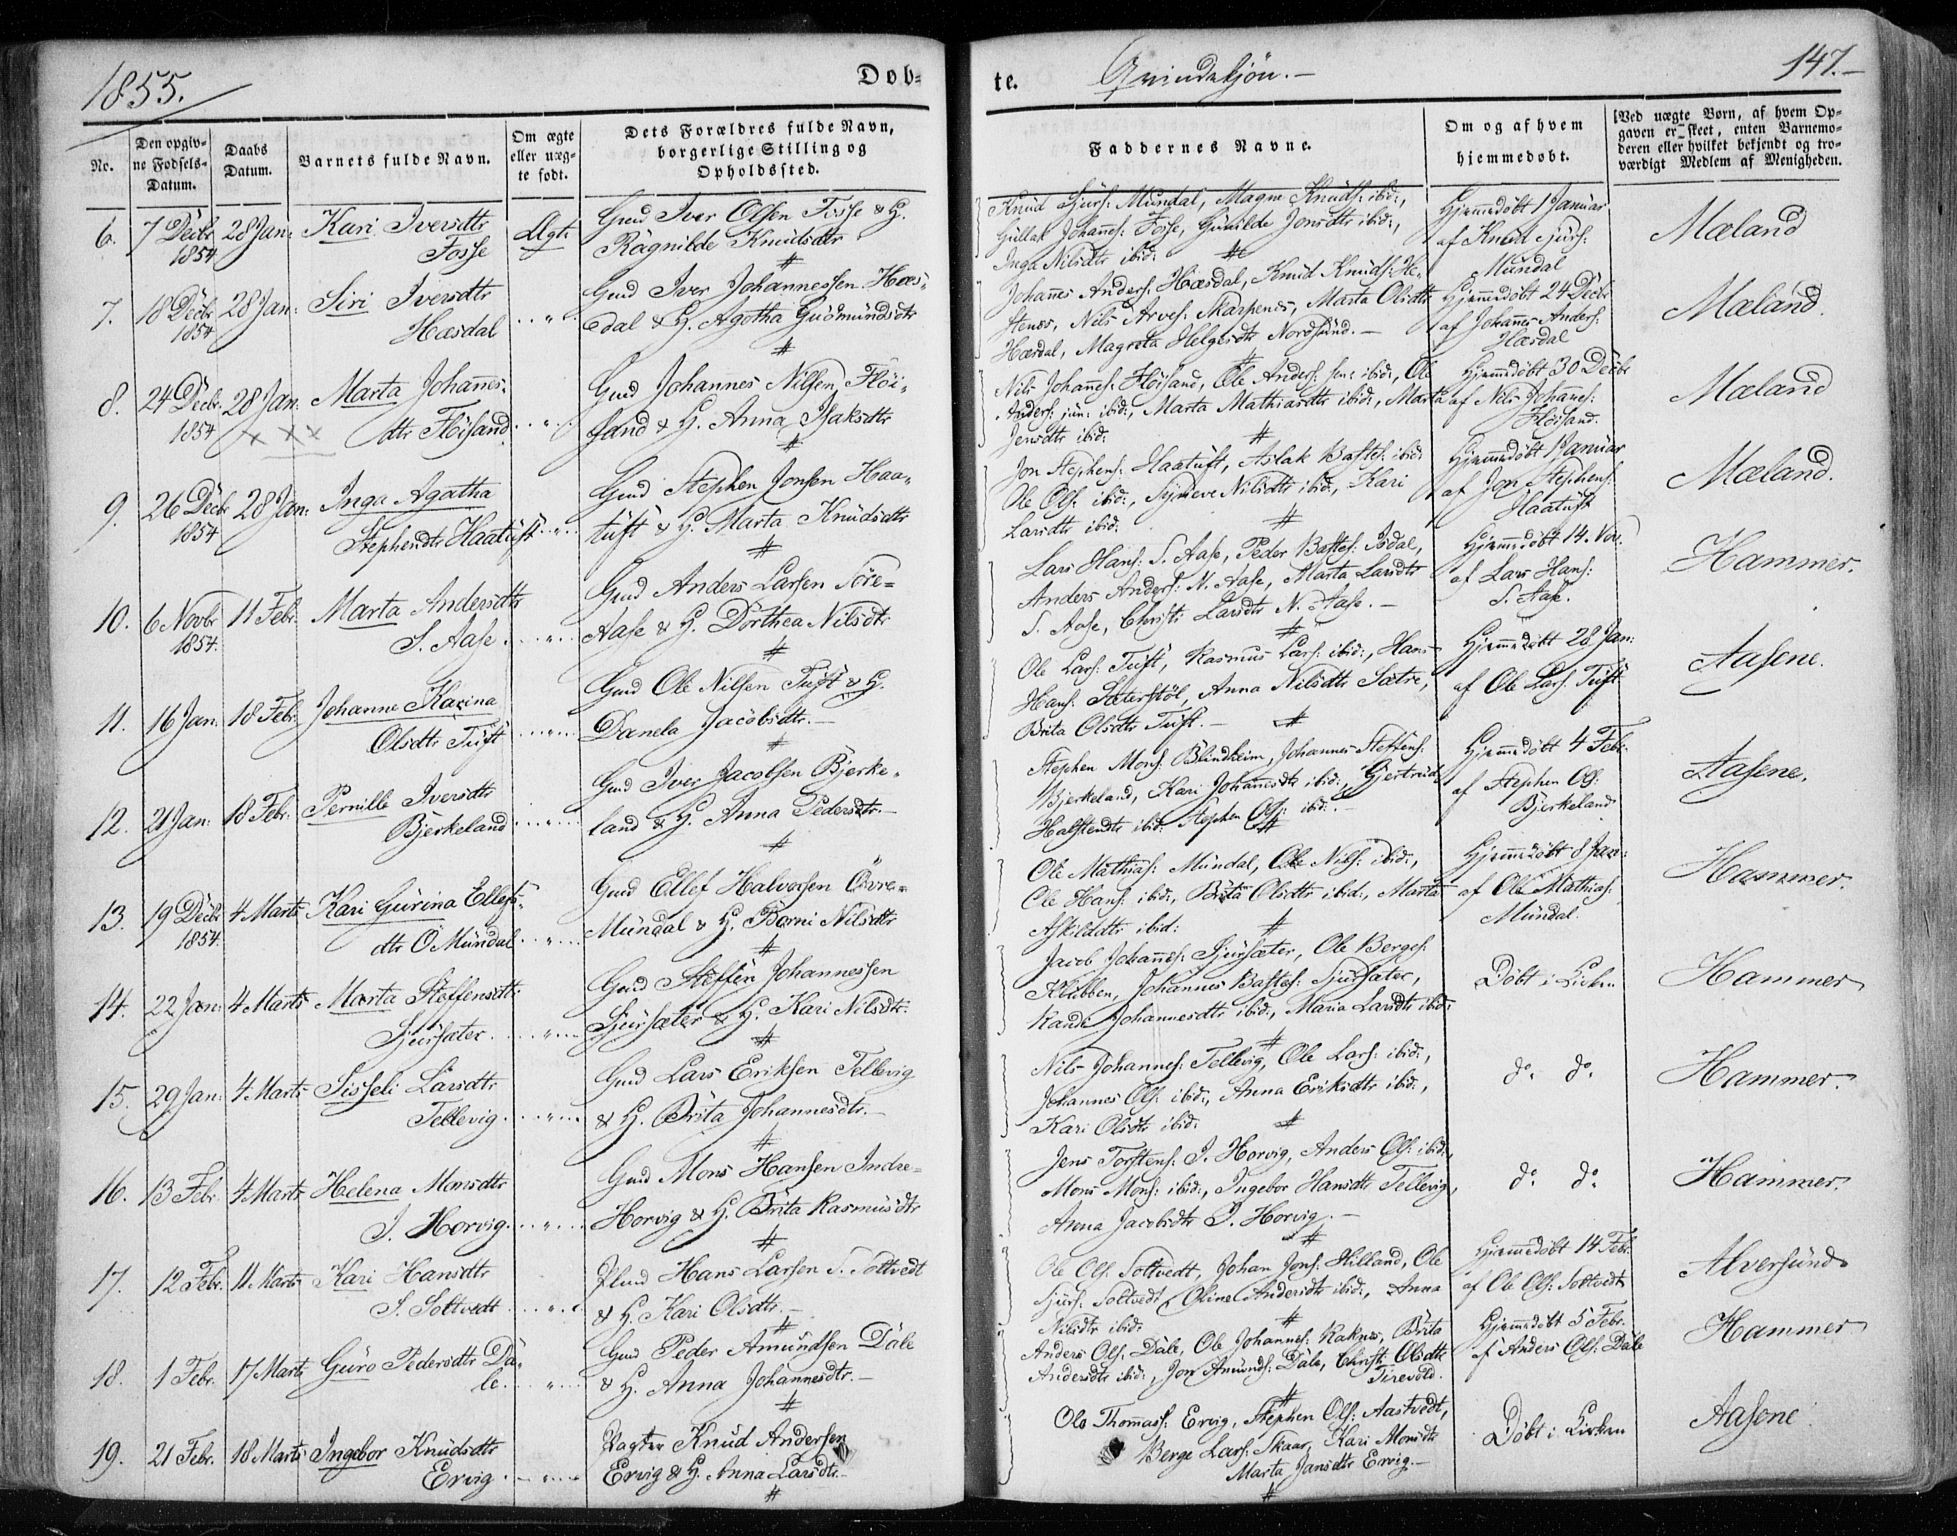 1855.
Døb-
te.
Qvindekjön.-
147.-
No.
Den opgiv-
ne Fødsels-
Datum.
Daabs
Datum.
Barnets fulde Navn.
Om ægte
eller uæg-
te født.
Dets Forældres fulde Navn,
borgerlige Stilling og
Opholdssted.
Faddernes Navne.
Om og af hvem
hjemmedøbt.
Ved uægte Børn, af hvem Op-
gaven er skeet, enten Barnemo-
deren eller hvilket bekjendt og tro-
værdigt Medlem af Menigheden.
6. 7 Decbr 1854 28 Jan: Kari Iversdtr
Fosse
Ægte
Gmd Iver Olsen Fosse & H.
Ragnilde Knudsdtr
Knud Sjurs: Mundal, Magne Knuds: ibid:,
Gullak Johanes: Fosse, Gunilde Jonsdtr ibid:,
Inga Nilsdtr ibid:
Hjemmedöbt 1 Januar
af Knud Sjurs:
Mundal
Mæland
7. 18 Decbr 1854 28 Jan: Siri Iversdtr
Hæsdal
Gmd Iver Johannessen Hæs-
dal & H. Agotha Gudmundsdtr
Johanes Anders: Hæsdal, Knud Knuds: He-
stenes, Nils Arves: Skarpenes, Marta Olsdtr
Hæsdal, Magreta Helgesdtr Nordsund.-
Hjemmedöbt 24 Decbr
af Johannes Anders:
Hæsdal
Mæland.
8. 24 Decbr. 1854 28 Jan: Marta Johanes-
dtr Flöisand
Gmd Johannes Nilsen Flöi-
sand & H. Anna Isaksdtr
Nils Johanes: Flöisand, Ole Anders: sen: ibid:, Ole
Anders: jun: ibid:, Marta Mathiasdtr ibid:, Marta
Jensdtr ibid:
Hjemmedöbt 30 Decbr
af Nils Johanes:
Flöisand.
Mæland
9. 26 Decbr 1854 28 Jan: Inga Agatha
Stephendtr Haatuft
Gmd Stephen Jonsen Haa-
tuft & H. Marta Knudsdtr
Jon Stephens: Haatuft, Aslak Bastes: ibid:
Ole Ols: ibid:, Syneve Nilsdtr ibid:, Kari
Larsdtr ibid:
Hjemmedöbt 1 Januar
af Jon Stephens:
Haatuft
Mæland.
10. 6 Novbr 1854. 11 Febr. Marta Andersdtr
S. Aase
Gmd Anders Larsen Söre-
Aase & H. Dorthea Nilsdtr
Lars Hans: S. Aase, Peder Bastes: Isdal,
Anders Anders: N. Aase, Marta Larsdtr
S. Aase, Christi Larsdtr N. Aase.-
Hjemmedöbt 14 Nov.
af Lars Hans:
S. Aase.
Hammer.
11. 16 Jan. 18 Febr. Johanne Karina
Olsdtr Tuft
Gmd Ole Nilsen Tuft & H.
Danela Jacobsdtr.-
Ole Lars: Tuft, Rasmus Lars: ibid:, Hans
Hans: Sæterstöl, Anna Nilsdtr Sætre,
Brita Olsdtr Tuft.-
Hjemmedöbt 28 Jan:
af Ole Lars: Tuft
Aasene.
12. 21 Jan: 18 Febr. Pernille Iversdtr
Bjerkeland
Gmd Iver Jacobsen Bjerke-
land & H. Anna Pedersdtr.-
Stephen Mons: Blindheim, Johannes Steffens:
Bjerkeland, Kari Johanesdtr ibid:, Gjertrud
Halstendtr ibid: Stephen Ols: ibid:-
Hjemmedöbt 4 Febr.
af Stephen Ols:
Bjerkeland
Aasene.
13. 19 Decbr 1854. 4 Marts Kari Gurina Ellefs-
dtr Ö Mundal
Gmd Ellef Halvorsen Övre-
Mundal & H. Barni Nilsdtr
Ole Mathias: Mundal, Ole Nils: ibid:,
Ole Hans: ibid:, Brita Olsdtr ibid:, Marta
Askilddtr ibid:
Hjemmedöbt 8 Jan:
af Ole Mathias:
Mundal.
Hammer.
14. 22 Jan: 4 Marts Marta Steffensdtr
Sjursæter
Gmd Steffen Johannessen
Sjursæter & H. Kari Nilsdtr.
Jacob Johanes: Sjursæter, Ole Berges:
Klubben, Johannes Bastes: Sjursæter,
Randi Johannesdtr ibid:, Maria Larsdtr ibid:
Döbt i Kirken
Hammer
15. 29 Jan: 4 Marts Sisseli Larsdtr
Tellevig
Gmd Lars Eriksen Tellevig
& H. Brita Johannesdtr.-
Nils Johannes: Tellevig, Ole Lars: ibid:,
Johannes Ols: ibid:, Anna Eriksdtr ibid:,
Kari Olsdtr ibid:
do. do.
Hammer.
16. 13 Febr. 4 Marts Helena Monsdtr
I. Horvig
Gmd Mons Hansen Indre-
Horvig & H. Brita Rasmusdtr
Jens Torstens: I. Horvig, Anders Ols: ibid:,
Mons Mons: ibid:, Ingebor Hansdtr Tellevig,
Anna Jacobsdtr I. Horvig.-
do. do.
Hammer.
17. 12 Febr. 11 Marts Kari Hansdtr
S. Soltvedt
Hans Larsen S. Soltvedt
& H. Kari Olsdtr.-
Ole Ols: Soltvedt, Johan Jons: Hilland, Ole
Sjurs: Soltvedt, Oline Andersdtr ibid:, Anna
Nilsdtr ibid:
Hjemmedöbt 14 Febr.
af Ole Ols: Soltvedt
Alversund
18. 1 Febr. 17 Marts Guro Pedersdtr Da-
le
Gmd Peder Amundsen Dale
& H. Anna Johannesdtr.-
Anders Ols: Dale, Ole Johannes: Raknes, Brita
Andersdtr ibid:, Jon Amunds: Dale, Christi Olsdtr
Hjemmedöbt 5 Febr.
af Anders Ols: Dale
Hammer
19. 21 Febr. 18 Marts Ingebor Knudsdtr
Ervig
Pagter Knud Andersen
Ervig & H. Anna Larsdtr.-
Ole Thomass: Ervig, Stephen Ols: Aastvedt,
Berge Lars: Skaar, Kari Monsdtr
Marta Jansdtr Ervig.-
Döbt i Kirken
Aasene